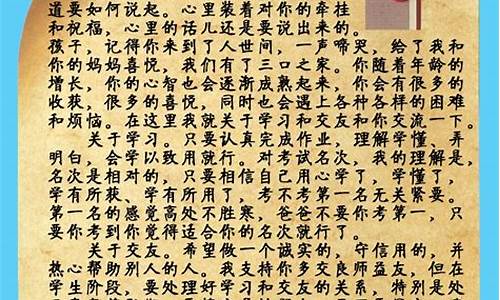 道要如何说起。心里装着对你的牵挂
和祝福，心里的话儿还是要说出来的。
孩子，记得你来到了人世间，一声啼哭，给了我和
你的妈妈喜悦，我们有了三口之家。你随着年龄的
增长，你的心智也会逐渐成熟起来，你会有很多的
收获，很多的喜悦，同时也会遇上各种各样的困难
和烦恼。在这里我就关于学习和交友和你交流一下。
关于学习。只要认真完成作业，理解学懂、弄
明白，会学以致用就行。对考试名次，我的理解是，
名次是相对的，只要相信自己用心学了，学懂了，
学有所获、学有所用了，考不考第一名无关紧要。
第一名的感觉高处不胜寒，爸爸不要你考第一，只
要你考到你觉得适合你的名次就行了。
关于交友。希望做一个诚实的，守信用的，并
热心帮助别人的人。我支持你多交良师益友，但在
学生阶段，要处理好学习和交友的关系，特别是处